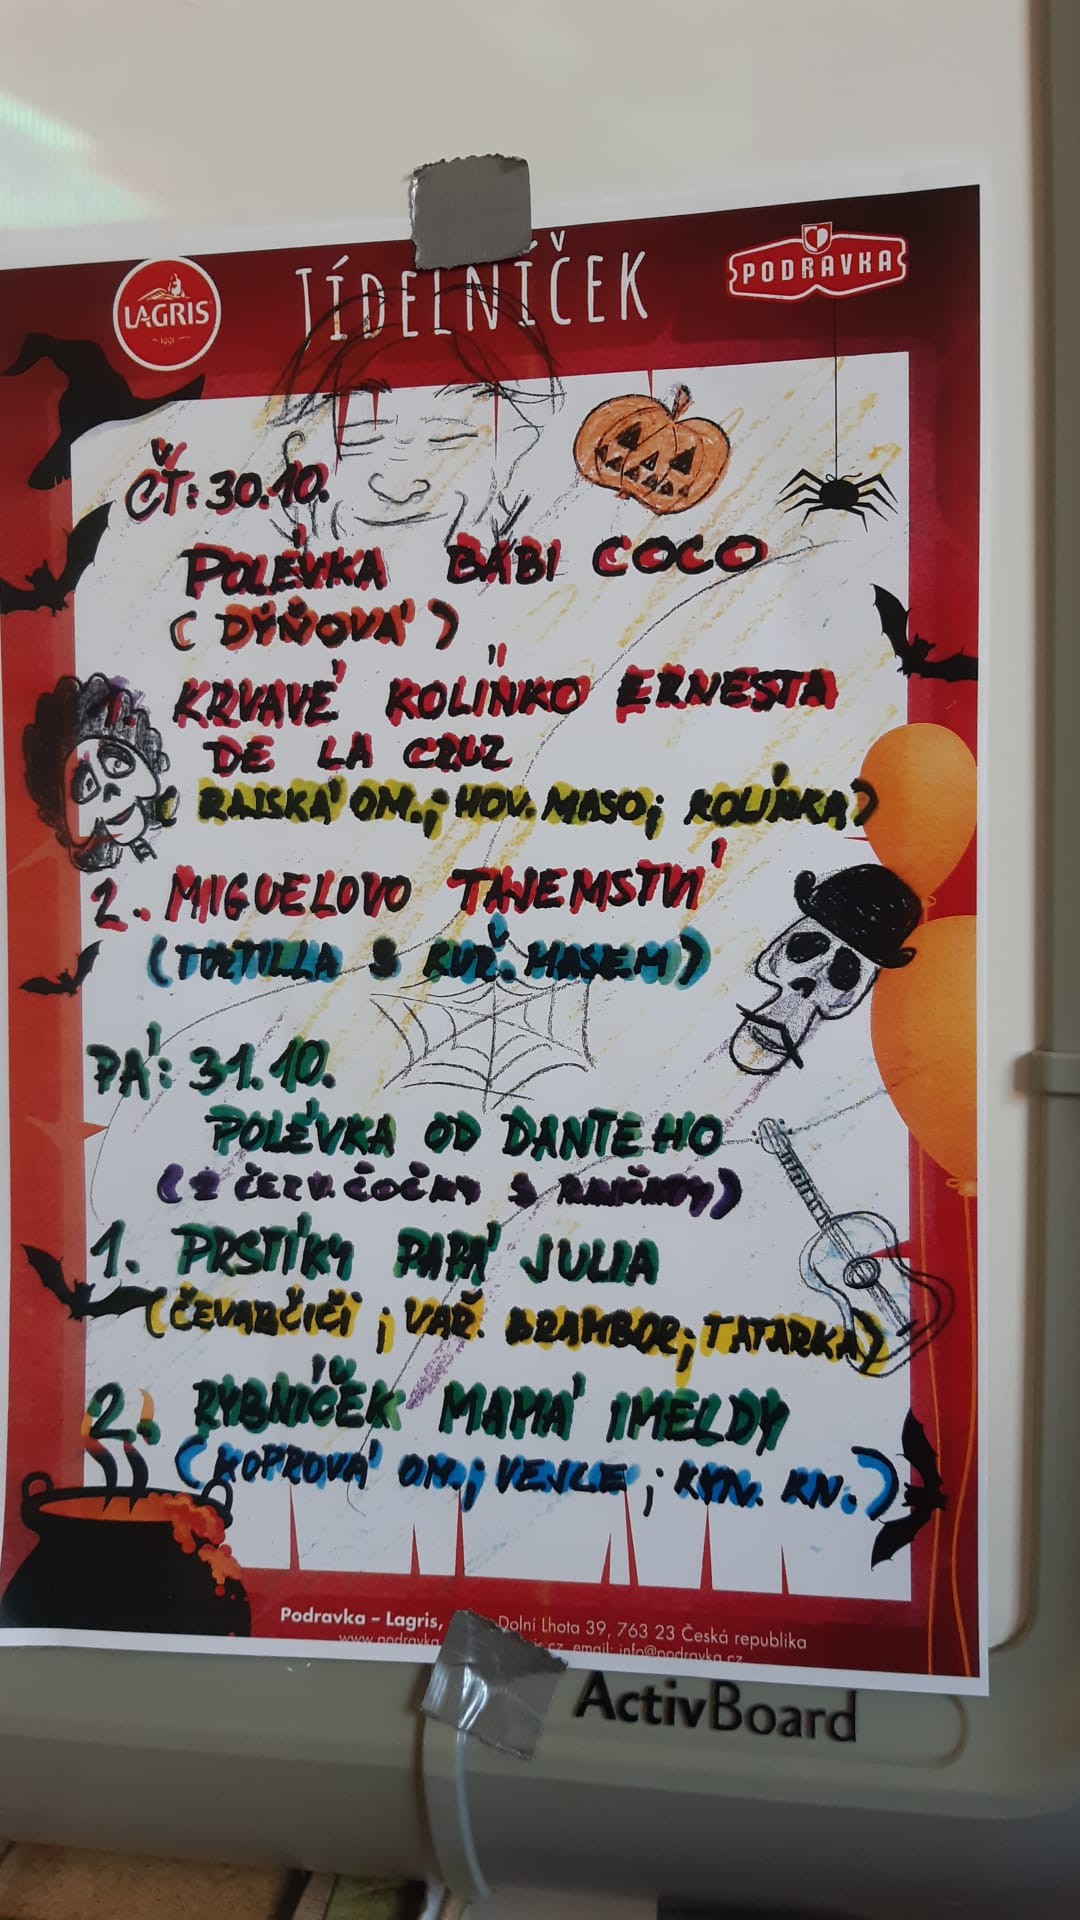 LAGRIS
1991
JÍDELNÍČEK
PODRAVKA
ČT: 30.10.
POLÉVKA BABI COCO
(DÝŇOVÁ)
1. KRVAVÉ KOLÍNKO ERNESTA
DE LA CRUZ
(RAJSKÁ OM.; HOV. MASO; KOLÍNKA)
2. MIGUELOVO TAJEMSTVÍ
(TORTILLA S KUŘ. MASEM)
PÁ: 31.10.
POLÉVKA OD DANTEHO
(Z ČERV. ČOČKY S RAJČATY)
1. PRSTÍKY PAPÁ JULIA
(ČEVABČIČI; VAŘ. BRAMBOR; TATARKA)
2. RYBNÍČEK MAMÁ IMELDY
(KOPROVÁ OM.; VEJCE; KYN. KN.)
Podravka – Lagris, Dolní Lhota 39, 763 23 Česká republika
www.podravka is.cz, email: info@podravka.cz
ActivBoard